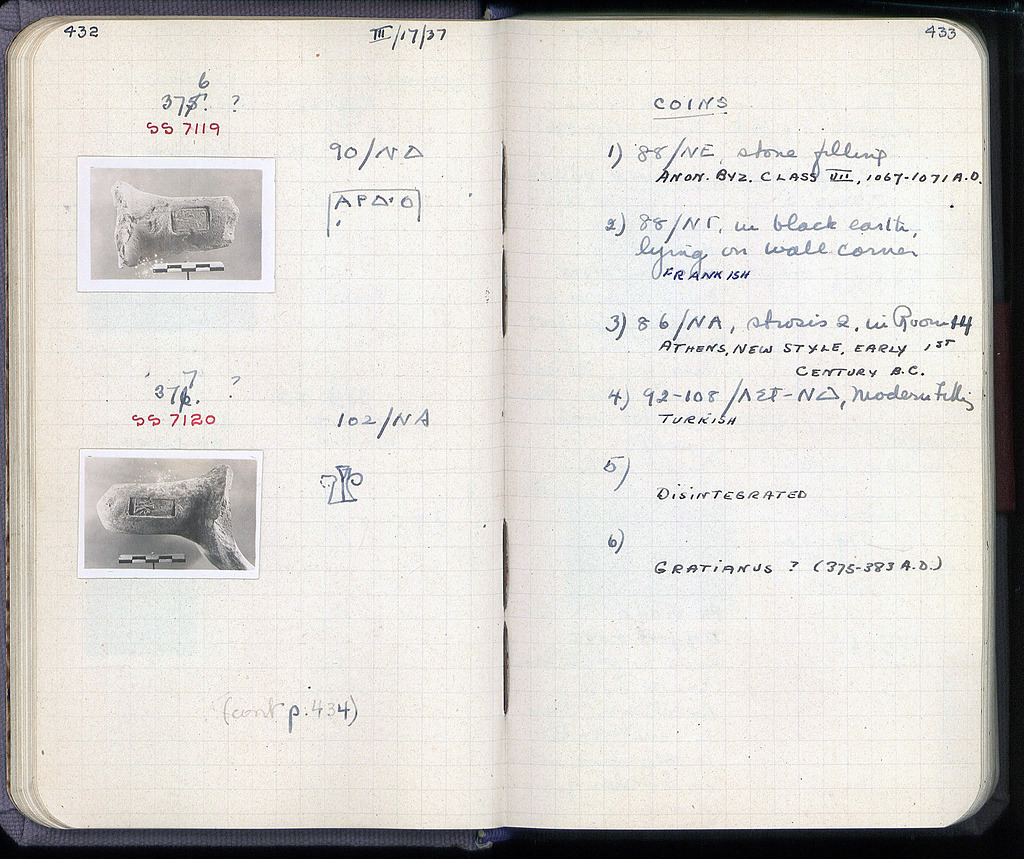 432
III/17/37
6
375. ?
SS 7119
90/ΝΔ
ΑΡΔ·Ο
7
376. ?
SS 7120
102/ΝΑ
(cont p. 434)
433
COINS
1) 88/ΝΕ, stone filling
ANON. BYZ. CLASS VII, 1067-1071 A.D.
2) 88/ΝΓ, in black earth,
lying on wall corner
FRANKISH
3) 86/ΝΑ, strosis 2, in Room 14
ATHENS, NEW STYLE, EARLY 1ST
CENTURY B.C.
4) 92-108 / -ΝΔ, Modern Filling
TURKISH
5)
DISINTEGRATED
6)
GRATIANUS ? (375-383 A.D.)